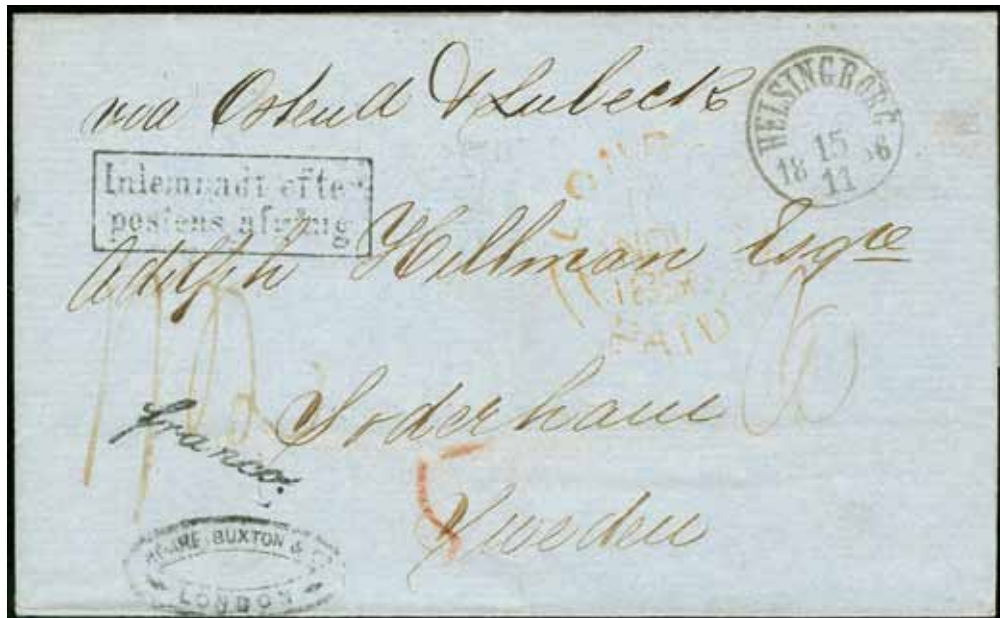 via Ostend & Lubeck
HELSINGBORG
15
18 56
11
Inlemnadt efter
postens afgång
LOND
NOV
PAID
Adolph Hillman Esqre
6
Soderham
franco.
5
Sweden
HOARE, BUXTON & Co
LONDON